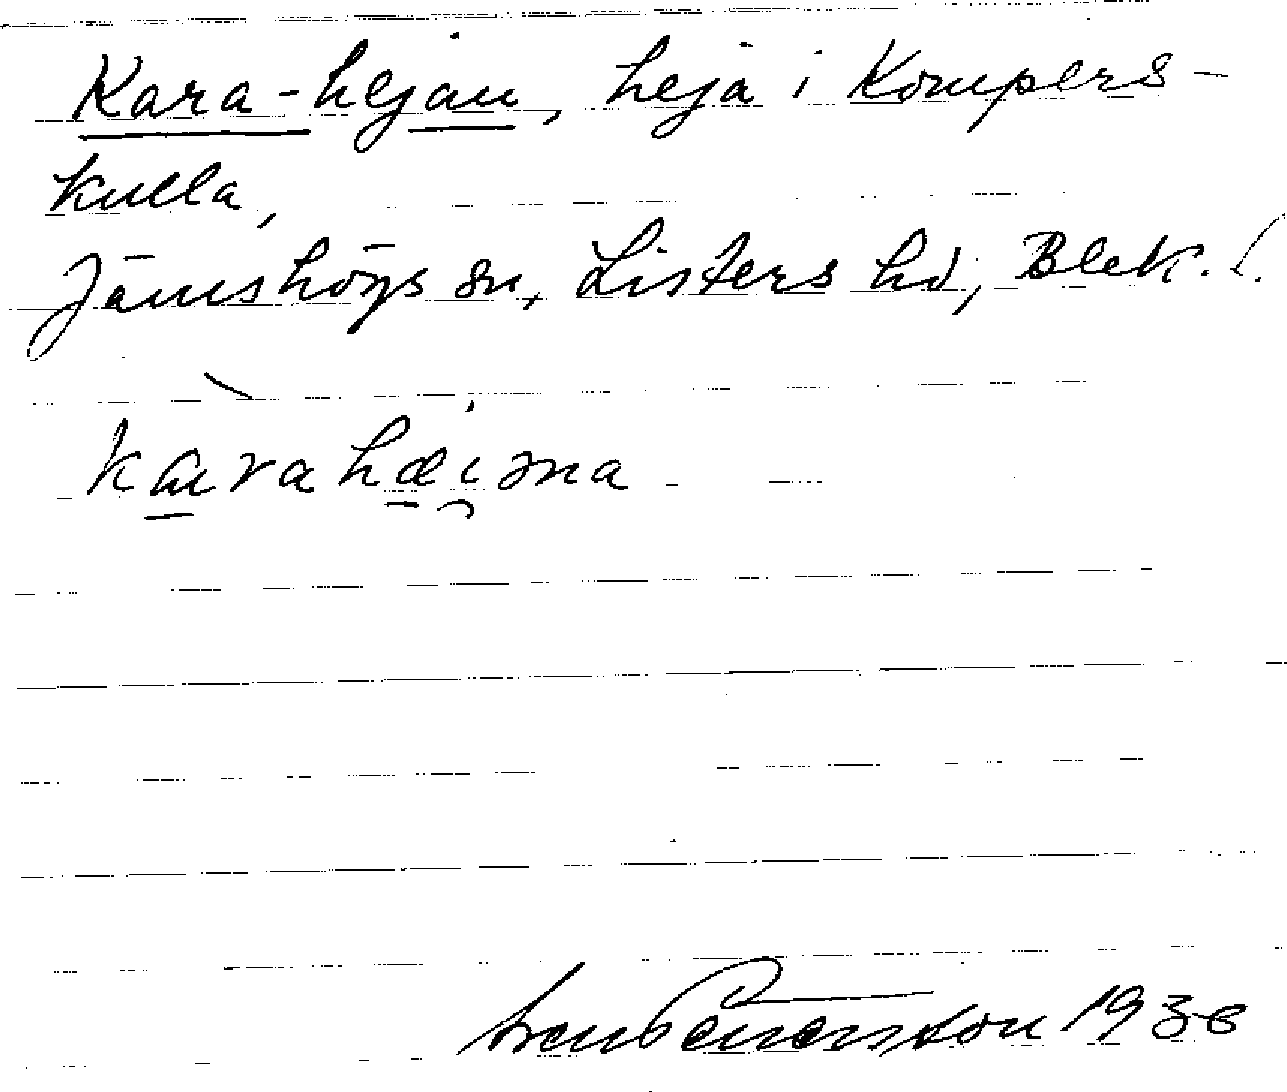 Kara-hejan, heja i Kompers-
kulla,
Jämshögs sn, Listers hd, Blek. l.
karahæi̯əna
1938